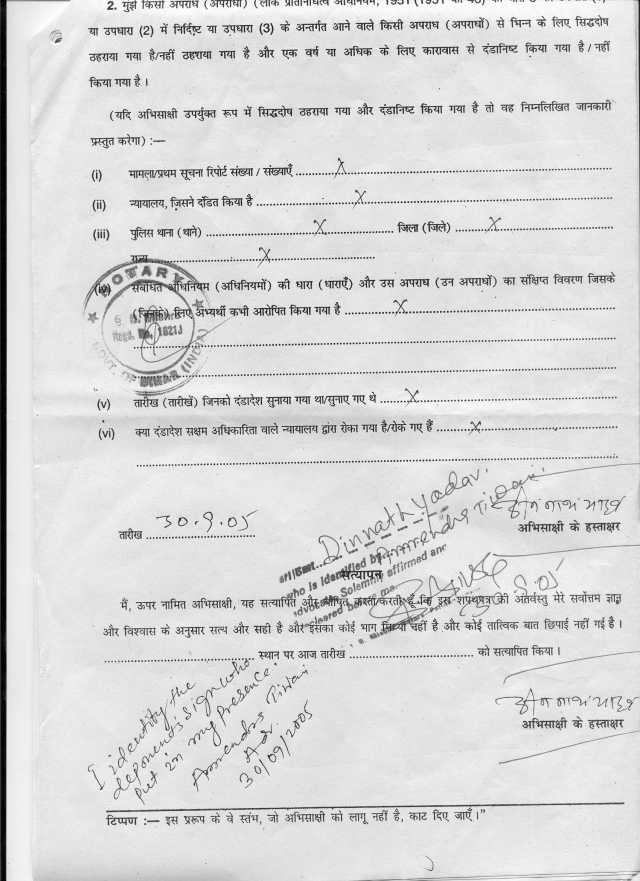 2. मुझे किसी अपराध (अपराधों) (लोक प्रतिनिधित्व अधिनियम, 1951 (1951 का 43) की धारा
या उपधारा (2) में निर्दिष्ट या उपधारा (3) के अन्तर्गत आने वाले किसी अपराध (अपराधों) से भिन्न के लिए सिद्धदोष
ठहराया गया है/नहीं ठहराया गया है और एक वर्ष या अधिक के लिए कारावास से दंडानिष्ट किया गया है / नहीं
किया गया है ।
(यदि अभिसाक्षी उपर्युक्त रूप में सिद्धदोष ठहराया गया और दंडानिष्ट किया गया है तो वह निम्नलिखित जानकारी
प्रस्तुत करेगा) :—
(i) मामला/प्रथम सूचना रिपोर्ट संख्या / संख्याएँ ........ X ........
(ii) न्यायालय, जिसने दंडित किया है ........ X ........
(iii) पुलिस थाना (थाने) ........ X ........ जिला (जिले) ........ X ........
राज्य ........ X ........
(iv) संबंधित अधिनियम (अधिनियमों) की धारा (धाराएँ) और उस अपराध (उन अपराधों) का संक्षिप्त विवरण जिसके
(जिनके) लिए अभ्यर्थी कभी आरोपित किया गया है ........ X ........
NOTARY
Regd. No. 1821J
GOVT. OF BIHAR (INDIA)
(v) तारीख (तारीखें) जिनको दंडादेश सुनाया गया था/सुनाए गए थे ........ X ........
(vi) क्या दंडादेश सक्षम अधिकारिता वाले न्यायालय द्वारा रोका गया है/रोके गए हैं ........ X ........
तारीख 30.9.05
दीनानाथ यादव
अभिसाक्षी के हस्ताक्षर
Dinnath Yadav.
who is Identified by Amrendra Tiwari
Advocate Solemnly affirmed and
declared before me
सत्यापन
मैं, ऊपर नामित अभिसाक्षी, यह सत्यापित और घोषित करता/करती हूँ कि इस शपथपत्र की अंतर्वस्तु मेरे सर्वोत्तम ज्ञान
और विश्वास के अनुसार सत्य और सही है और इसका कोई भाग मिथ्या नहीं है और कोई तात्विक बात छिपाई नहीं गई है ।
........ स्थान पर आज तारीख ........ को सत्यापित किया ।
I identity the
deponent's sign who
put in my presence.
Amrendra Tiwari
Adv.
30/09/2005
दीनानाथ यादव
अभिसाक्षी के हस्ताक्षर
टिप्पण :— इस प्ररूप के वे स्तंभ, जो अभिसाक्षी को लागू नहीं है, काट दिए जाएँ ।"